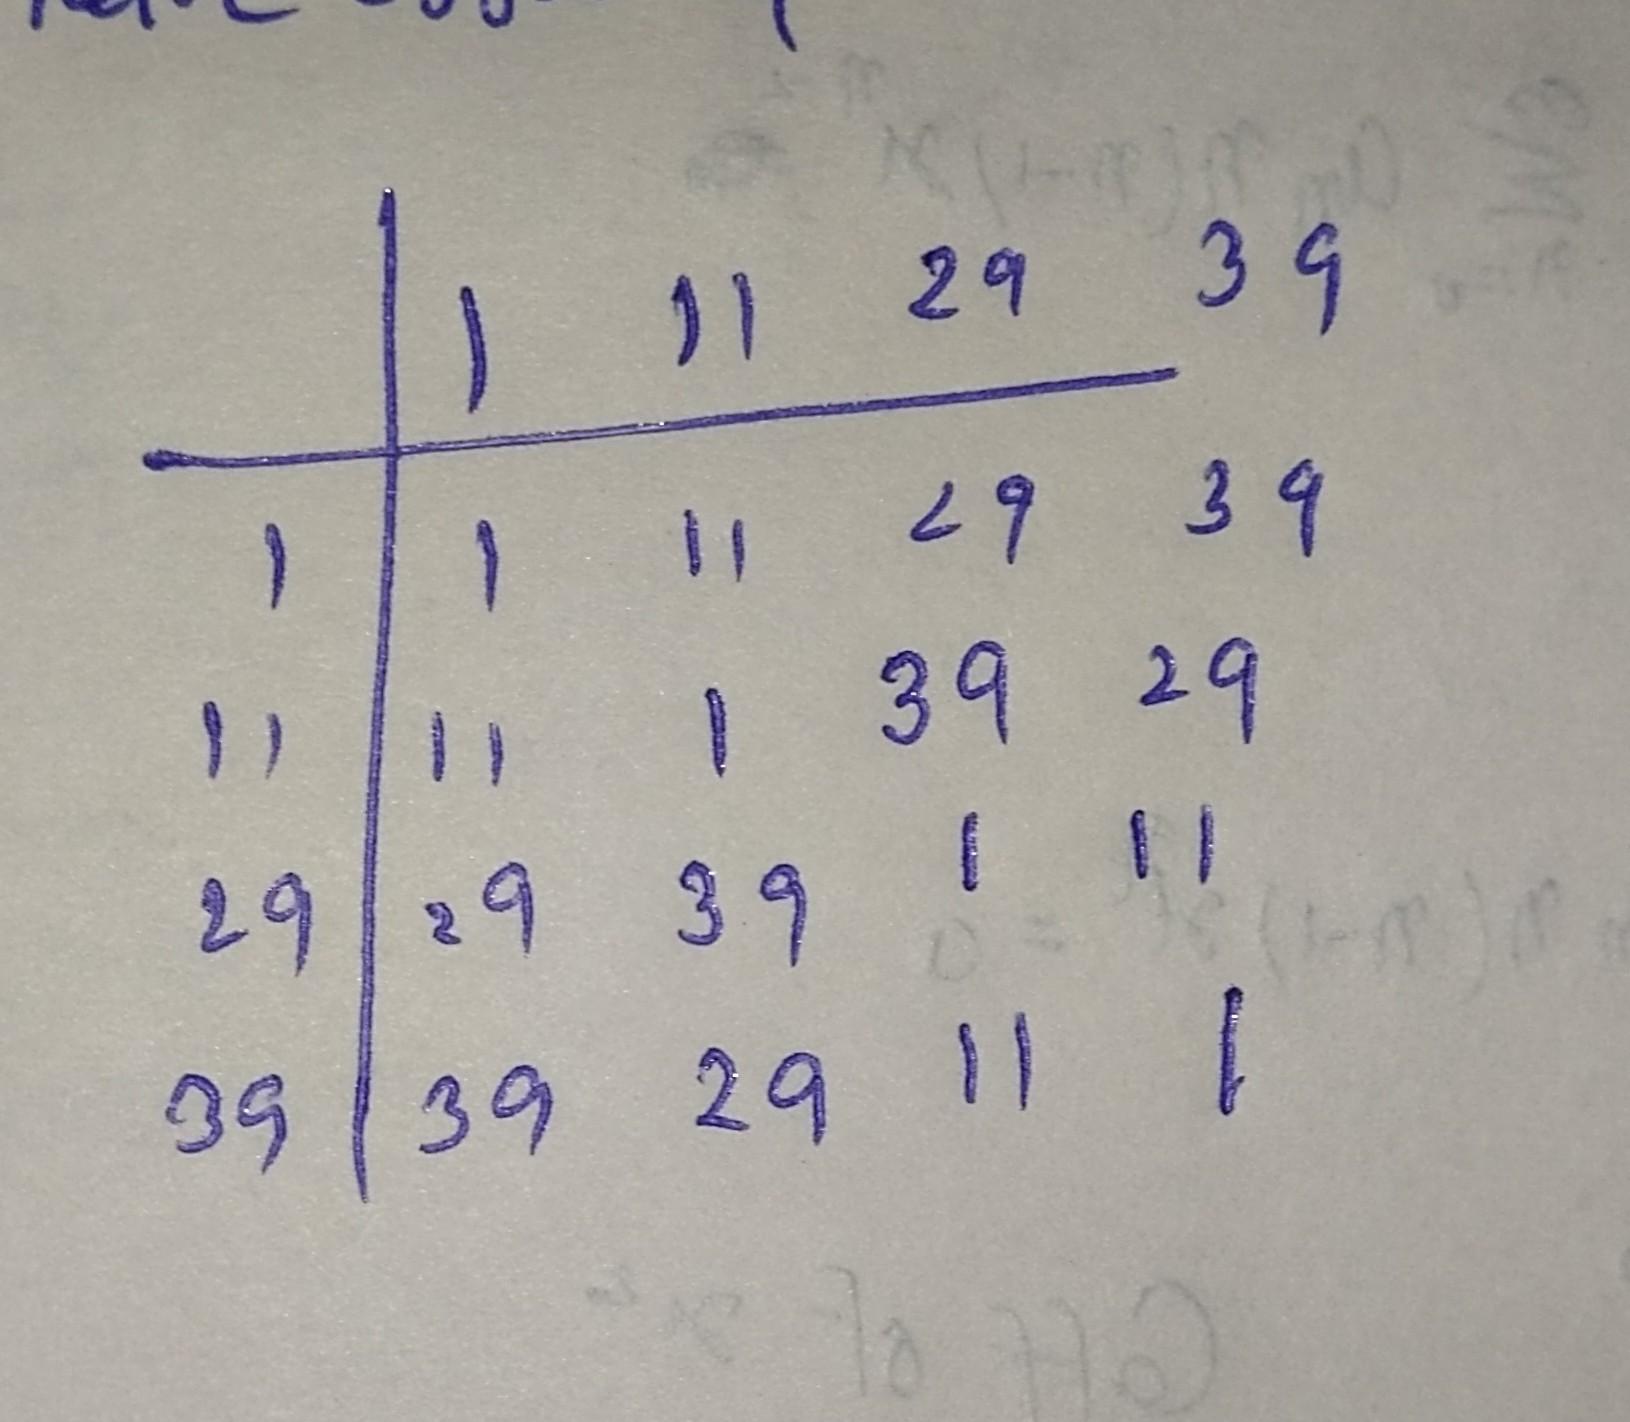 1 11 29 39
1 1 11 29 39
11 11 1 39 29
29 29 39 1 11
39 39 29 11 1